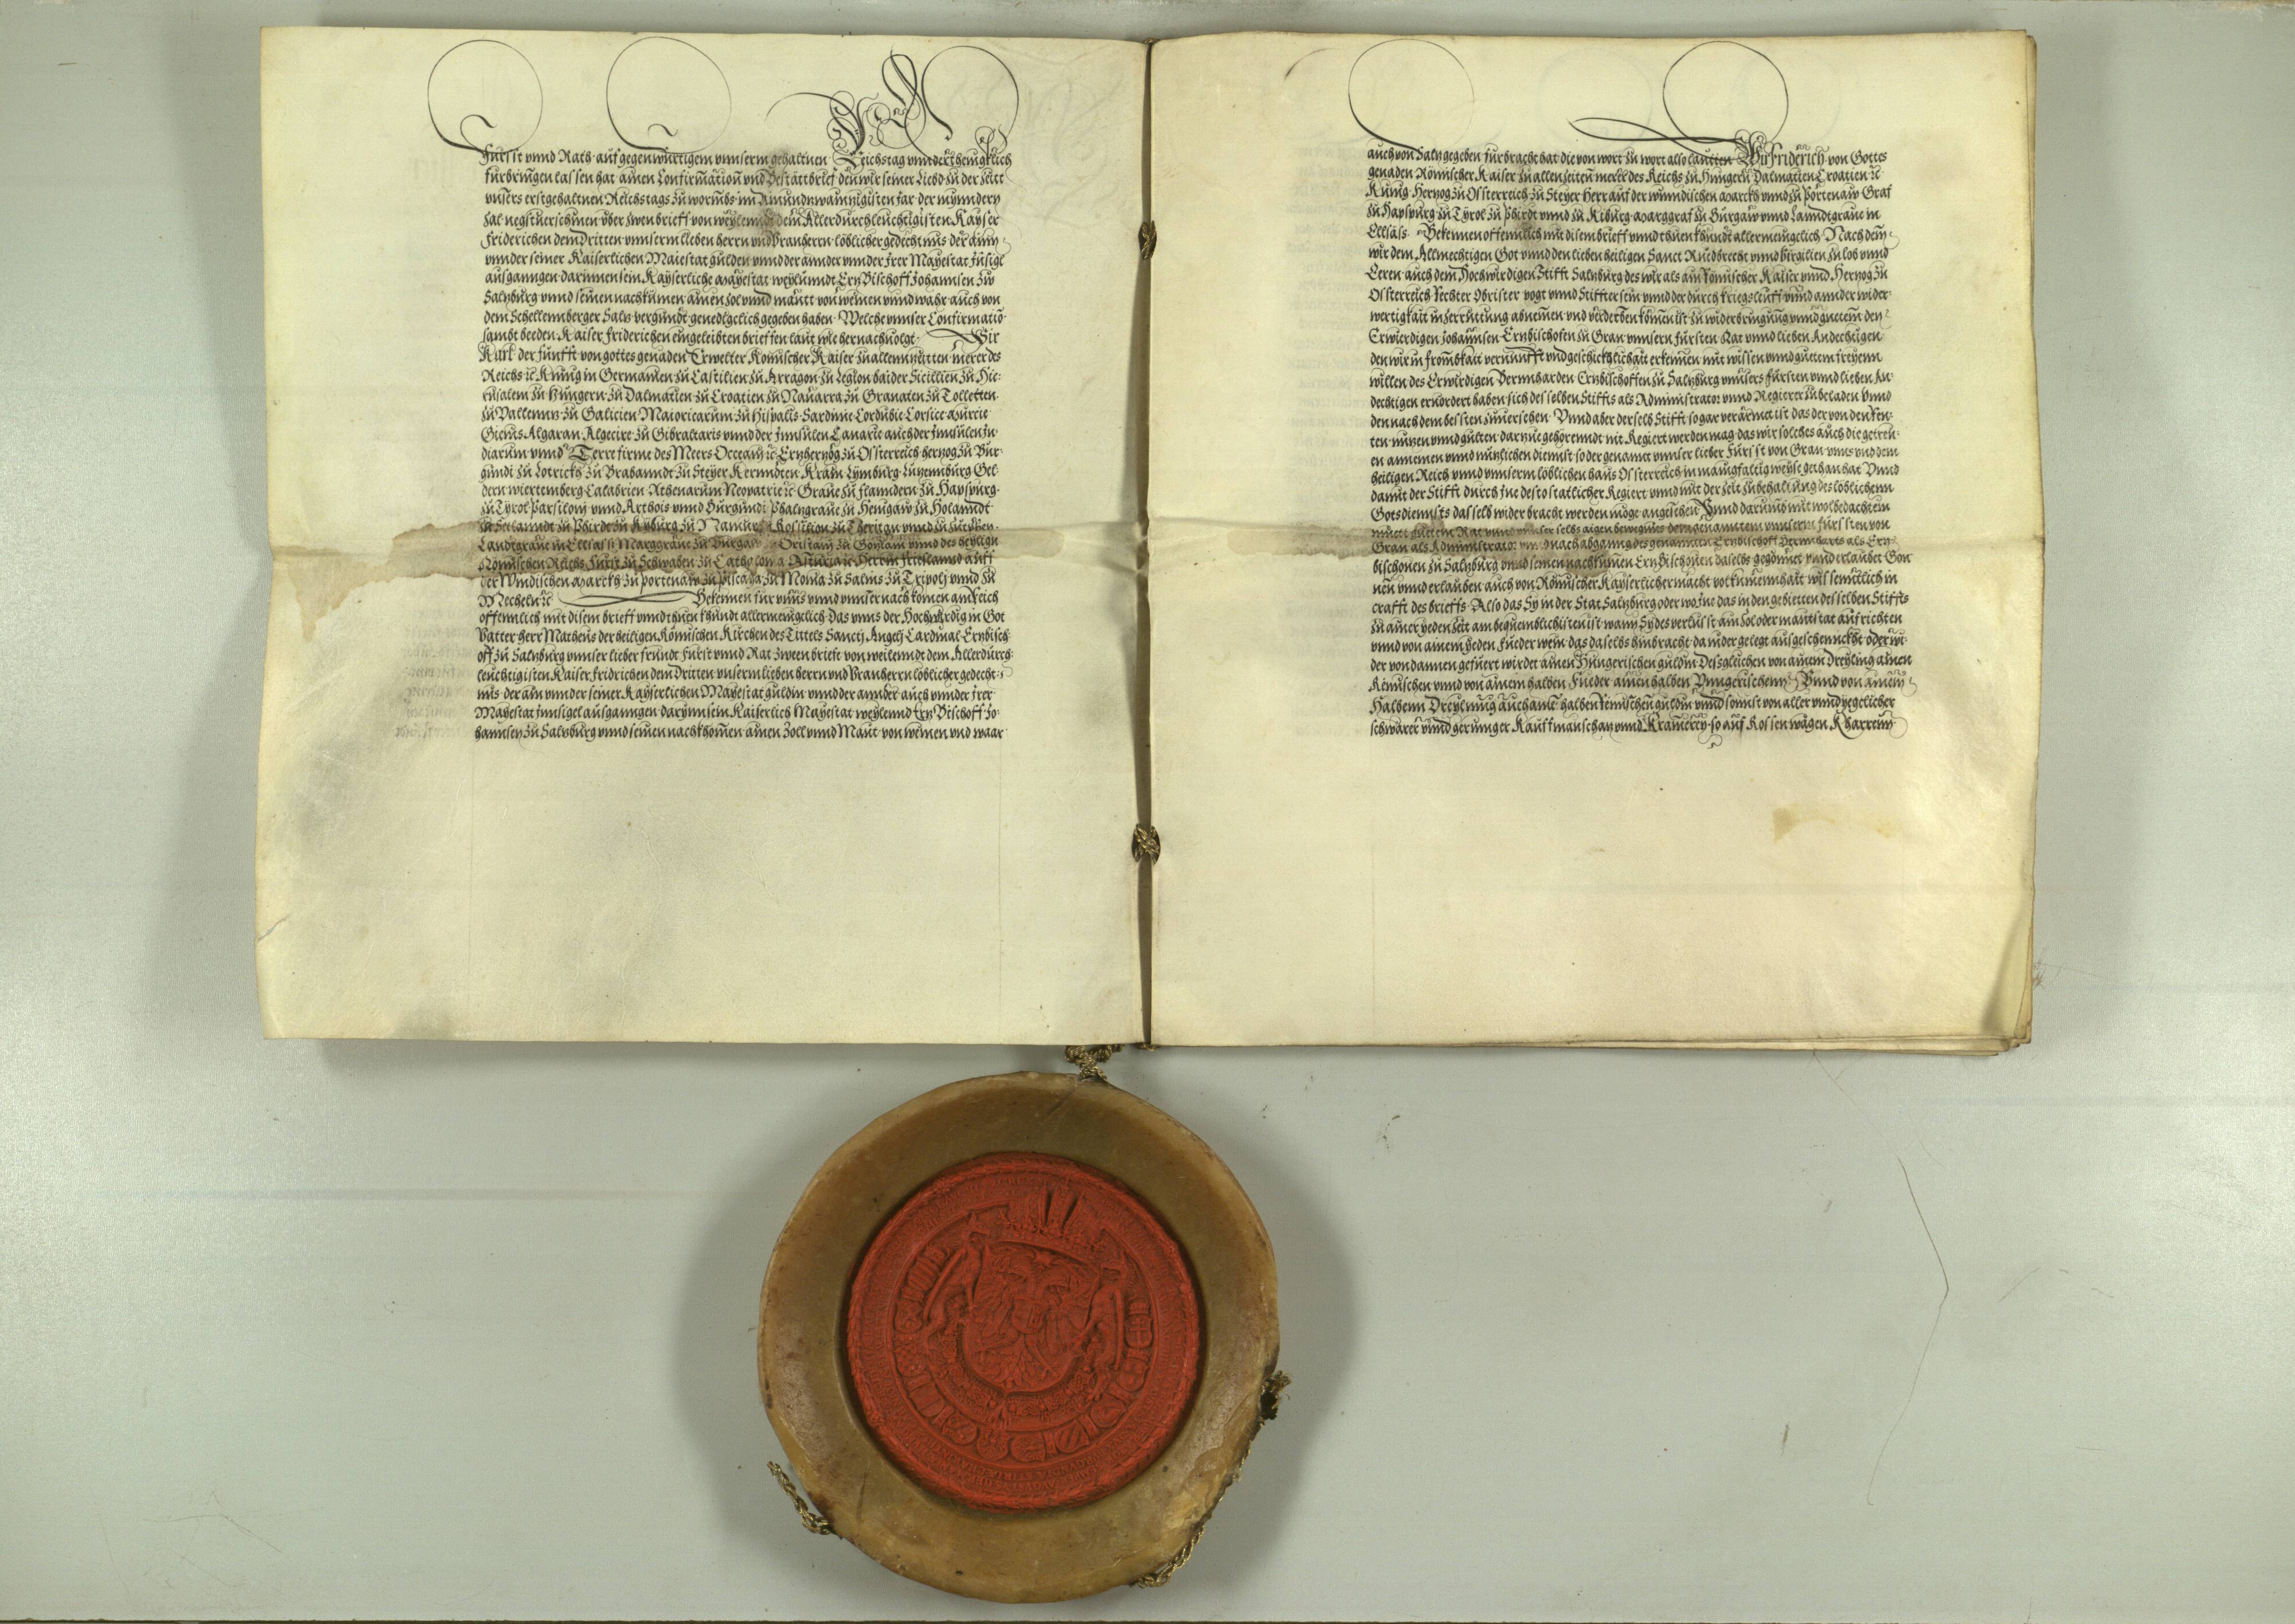 Fürst vnnd Rath auf gegenwürtigem vnnserm gehaltnen Reichstag vnndertheniglich
fürbringen lassen hat ainen Confirmation vnd Bestättbrief den wir seiner Liebd zu der Zeitt
vnsers erstgehaltnen Reichstags zu wormbs im Ainundzwainzigisten Jar der mynndern
Zal negstuerschinen vber zwen brieff von weylennd dem Allerdurchleuchtigisten Kayser
Friderichen dem Dritten vnnserm lieben herrn vnd Vranherrn löblicher gedechtnus der ain
vnnder seiner Kaiserlichen Maiestat gulden vnnd der annder vnnder Irer Mayestat Insigl
ausganngen darinnen sein Kayserliche Mayestat weylunndt Ertz Bischoff Johannsen zw
Saltzburg vnnd seinen nachkumen ainen zol vnnd mautt von weinen vnnd wahr auch von
dem Schellennberger Saltz vergundt genediglich gegeben haben Welche vnnser Confirmatio
sambt beeden Kaiser Friderichen eingeleibten brieffen laut wie hernach uolgt Wir
Karl der fünfft von gottes genaden Erwelter Romischer Kaiser zu allenntzeitten merer des
Reichs etc Kunig in Germanien zu Castilien zu Arragon zu Legion baider Sicillien zu Hie
rusalem zu Hungern zu Dalmatien zu Croatien zu Nauarra zu Granaten zu Tolleten
zu Vallenntz zu Galicien Maioricarum zu Hispalis Sardinie Cordubie Corsice Murcie
Gienis Algaran Algecire zu Gibraltaris vnnd der Innsulen Canarie auch der Innsulen In
diarum vnnd Terre firme des Meers Occeany etc Ertzhertzog zu Osterreich hertzog zu Bur
gundi zu Lotrickh zu Brabanndt zu Steyer Kernndten Krain Lymburg Lutzemburg Gel
dern wiertemberg Calabrien Athenarum Neopatrie etc Graue zu Flanndern zu Hapspurg
zu Tyrol Parsilony vnnd Arthois vnnd Burgundi Phaltzgraue zu Henigaw zu Holanndt
zu Seelanndt zu Phirdt zu Kyburg zu Namur zu Rossilion zu Ceritan vnnd zu Zutphen
Landtgraue in Ellsass Marggraue zu Burgaw Oristain zu Gotziani vnnd des heylign
Römischen Reichs Fürst zu Schwaben zu Cathalonia Asturia etc Herr in Frieslannd auff
der Windischen Marckh zu Portenaw zu Biscaia zu Molina zu Salins zu Tripoli vnnd zu
Mecheln etc Bekennen für vnns vnnd vnnser nachkomen am Reich
offennlich mit disem brieff vnnd thuen khundt allermenigelich Das vnns der Hochwirdig in Got
Vatter herr Matheus der heiligen Römischen Kirchen des Tittels Sancti Angeli Cardinal Ertzbisch
off zu Saltzburg vnnser lieber frundt Fürst vnnd Rat zween briefe von weilenndt dem Allerdurch
leuchtigisten Kaiser Fridrichen dem Dritten vnserm lieben herrn vnd Vranherrn löblicher gedecht
nus der ain vnnder seiner Kayserlichen Mayestat guldin vnnd der annder auch vnnder Irer
Mayestat Innsigel ausganngen darynn sein Kaiserlich Mayestat weylennd Ertz Bischoff Jo
hannsen zu Saltzburg vnnd seinen nachkhomen ainen Zoll vnnd Maut von weinen vnd waar
auch von Saltz gegeben fürbracht hat die von wort zu wort also lautten Wir Friderich von Gottes
genaden Römischer Kaiser zu allen zeiten merer des Reichs zu Hungern Dalmatien Croatien etc
Kunig Hertzog zu Osterreich zu Steyer Herr auf der winndischen Marckh vnnd zu Portenaw Graf
zu Hapspurg zu Tyrol zu Phirdt vnnd zu Kiburg Marggraf zu Burgaw vnnd Lanndtgraue in
Ellsäss Bekennen offennlich mit disem brieff vnnd thuen khundt allermenigelich Nach dem
wir dem Allmechtigen Got vnnd den lieben heiligen Sanct Ruedbrecht vnnd Virgilien zu lob vnnd
Eeren auch dem Hochwirdigen Stifft Saltzburg des wir als ain Römischer Kaiser vnnd Hertzog zu
Osterreich Rechter Obrister vogt vnnd Stiffter sein vnnd der durch kriegsleuff vnnd annder wider
wertigkait in zerruttung abnemen vnd verderben komen ist zu widerbringung vnnd guetem den
Erwierdigen Johannsen Ertzbischofen zu Gran vnnsern Fürsten Rat vnnd lieben Andechtigen
den wir in frombkait vernunfft vnd geschicklichait erkennen mit wissen vnnd guetem freyem
willen des Erwirdigen Bernnharden Ertzbischoffen zu Saltzburg vnnsers Fürsten vnnd lieben An
dechtigen eruordert haben sich des selben Stiffts als Administrator vnnd Regierer zu beladen vnnd
den nach dem bessten zuuersehen Vnnd aber derselb Stifft so gar verärmet ist das der von den Ren
ten nutzen vnnd gülten dartzue gehörenndt nit Regiert werden mag das wir solches auch die getreu
en annemen vnnd nutzlichen dienst so der genannt vnnser lieber Fürst von Gran vnns vnd dem
heiligen Reich vnnd vnnserm löblichen haus Osterreich in manigfaltig weyse gethan hat Vnnd
damit der Stifft durch Jne desto statlicher Regiert vnnd mit der Zeit zu behaltung des löblichenn
Gotsdiennsts dasselb widerbracht werden möge angesehen Vnnd darumb mit wolbedachtem
muett guetem Rat vnnd vnnser selbs aigen bewegnus dem genannten vnnserm Fürsten von
Gran als Administrator vnnd nach abganng des genannten Ertzbischoff Bernnharts als Ertz
bischouen zu Saltzburg vnnd seinen nachkumen Ertz Bischouen daselbs gegönnet vnnd erlaubet Gon
nen vnnd erlauben auch von Römischer Kayserlicher macht volkumennhait wissenntlich in
crafft des brieffs Also das Sy in der Stat Saltzburg oder wo Jne das in den gebietten desselben Stiffts
zu ainer yeden Zeit am bequemblichisten ist wann Sy des verlusst ain Zol oder mautstat aufrichten
vnnd von ainem yeden Fueder wein das daselbs hinbracht da nider gelegt ausgeschennckht oder wi
der von dannen gefuert wirdet ainen Hungerischen guldin Dessgleichen von ainem Dreyling ainen
Reinischen vnnd von ainem halben Fueder ainen halben Vnngerischenn Vnnd von ainem
Halbenn Dreyling auch ain halben Reinischen guldin vnnd sonnst von aller vnnd yegelicher
schwärer vnnd geringer Kauffmanschatz vnnd Kramerey so auf Rossen wägen Kharren